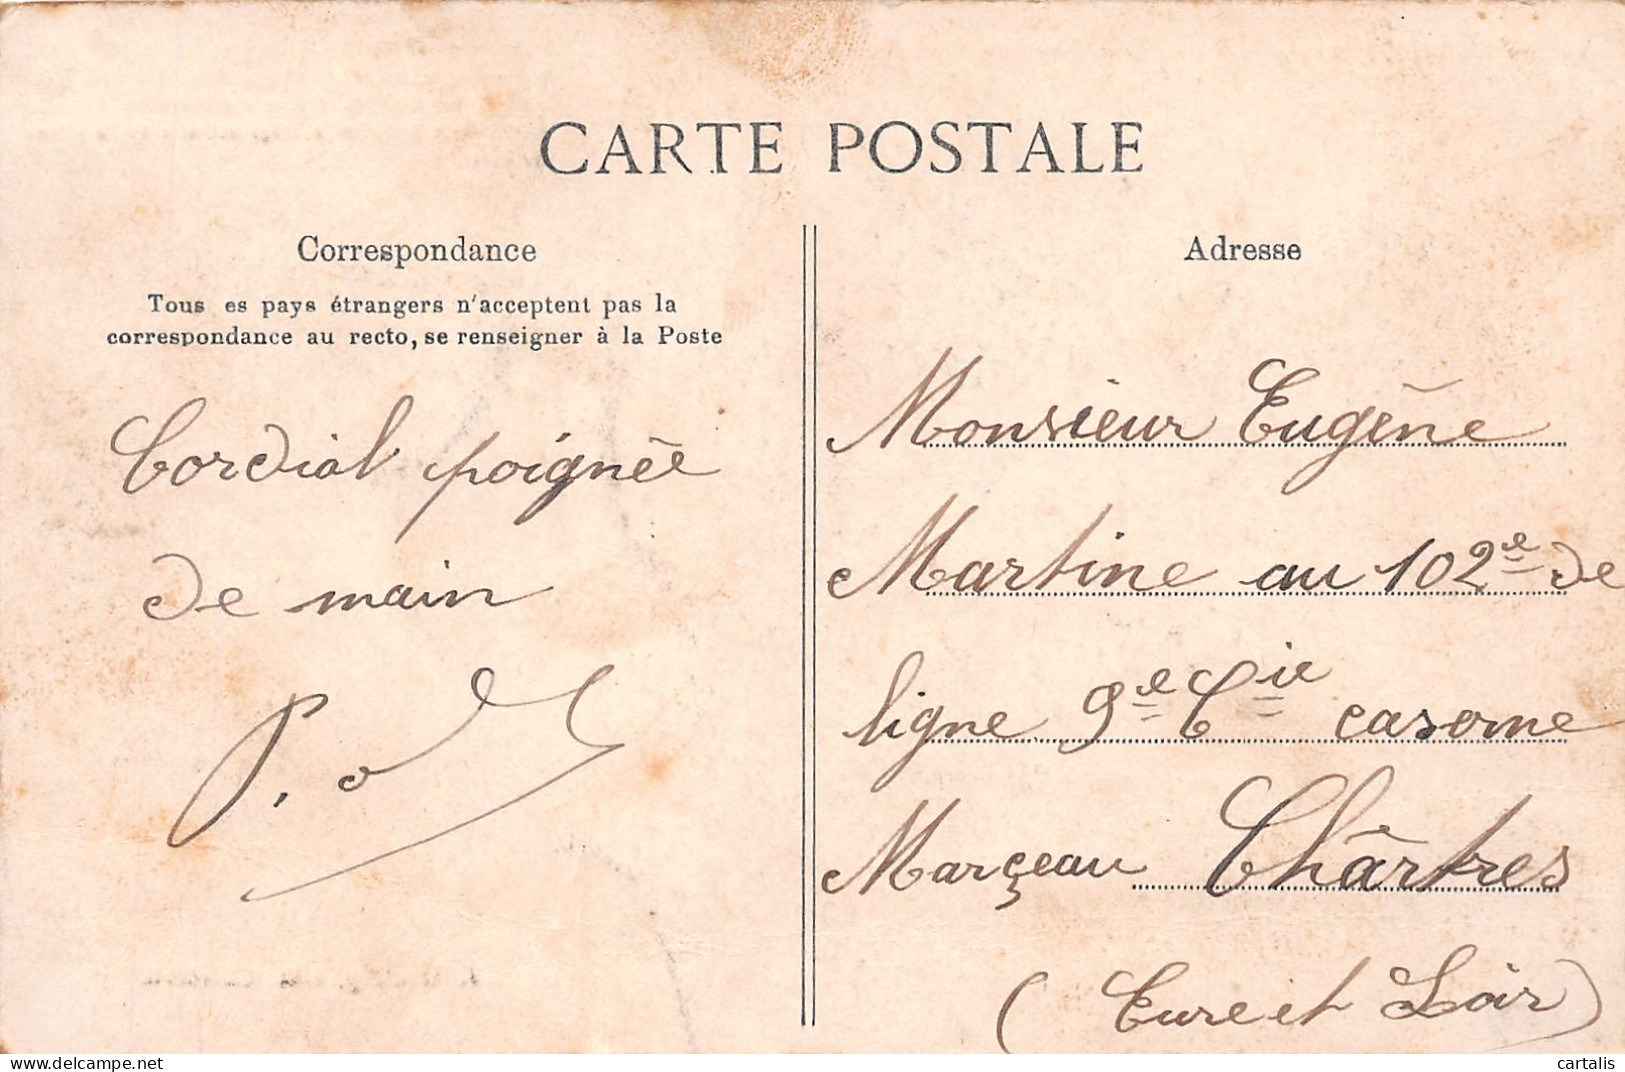 CARTE POSTALE
Correspondance
Tous es pays étrangers n'acceptent pas la
correspondance au recto, se renseigner à la Poste
Cordial poignée
de main
Adresse
Monsieur Eugène
Martine au 102e de
ligne 9e Cie caserne
Marçeau Chârtres
(Eure et Loir)
cartalis